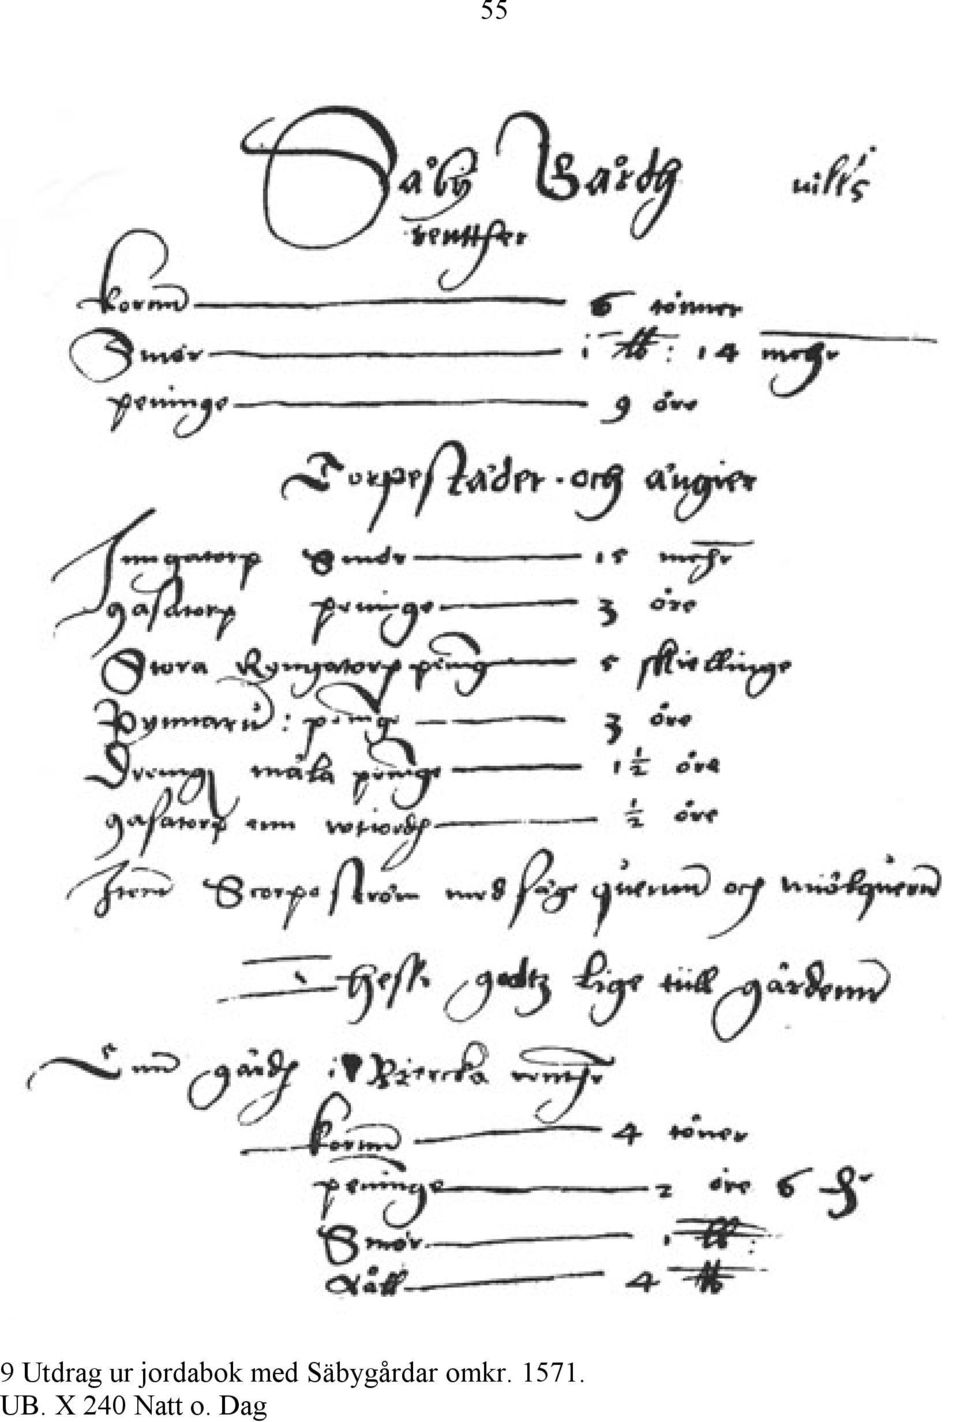 55
Säby Gårdh
rentther
kornn 6 tönner
Smör 1 ℔: 14 mchr
peninge 9 öre
Torpestäder och ängier
Inngatorp Smör 15 mchr
gasatorp peninge 3 öre
Stora Ryngatorp pinng 5 skiellinge
Rynnarü: pinge 3 öre
Dreng måla peninge 1½ öre
gasatorp enn ½ öre
Item Scorpe ström med såge quernn och miölquernn
godtz lige till gårdenn
Enn gårdh i Biercka renther
kornn 4 töner
peninge 2 öre 6
Smör 1 ℔:
4 ℔
9 Utdrag ur jordabok med Säbygårdar omkr. 1571.
UB. X 240 Natt o. Dag